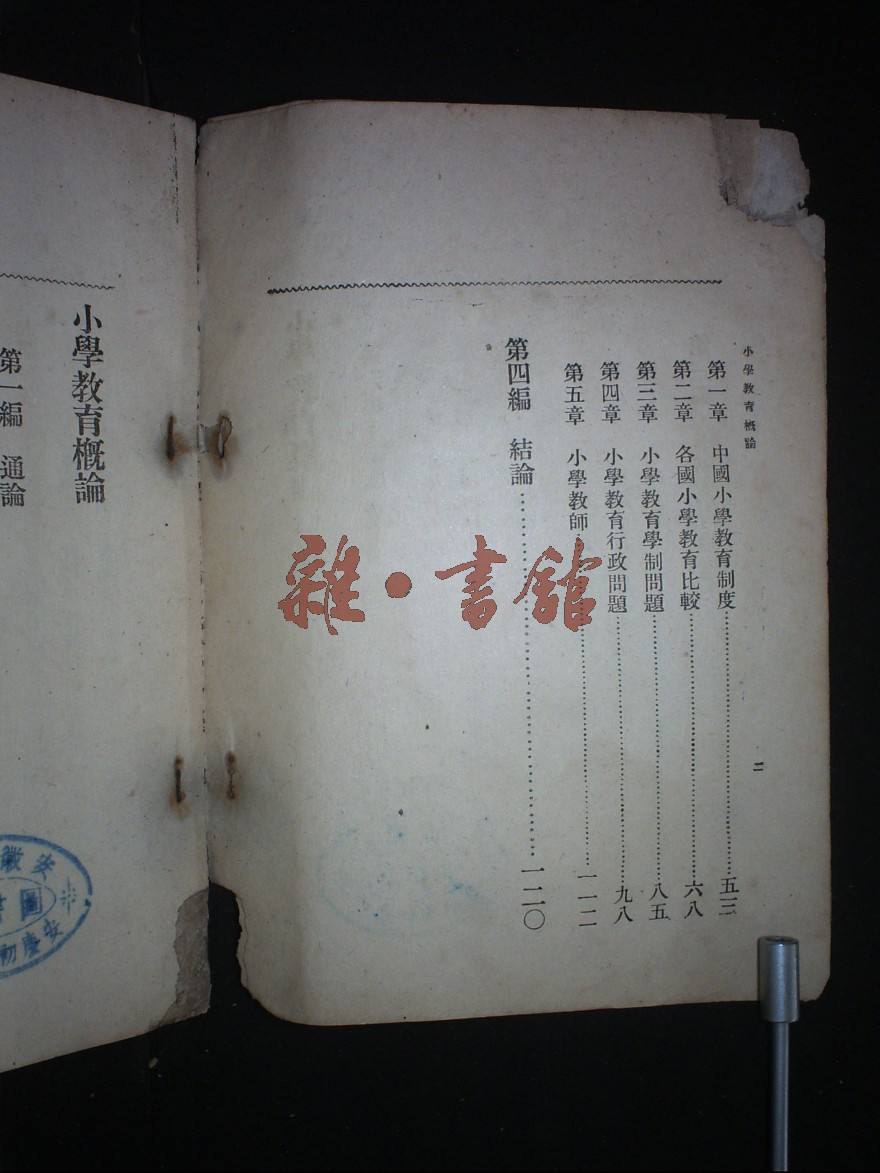 小學教育概論
二
第一章 中國小學教育制度……五三
第二章 各國小學教育比較……六八
第三章 小學教育學制問題……八五
第四章 小學教育行政問題……九八
第五章 小學教師……一一二
第四編 結論……一二〇
雜·書館
小學教育概論
第一編 通論
安慶
圖